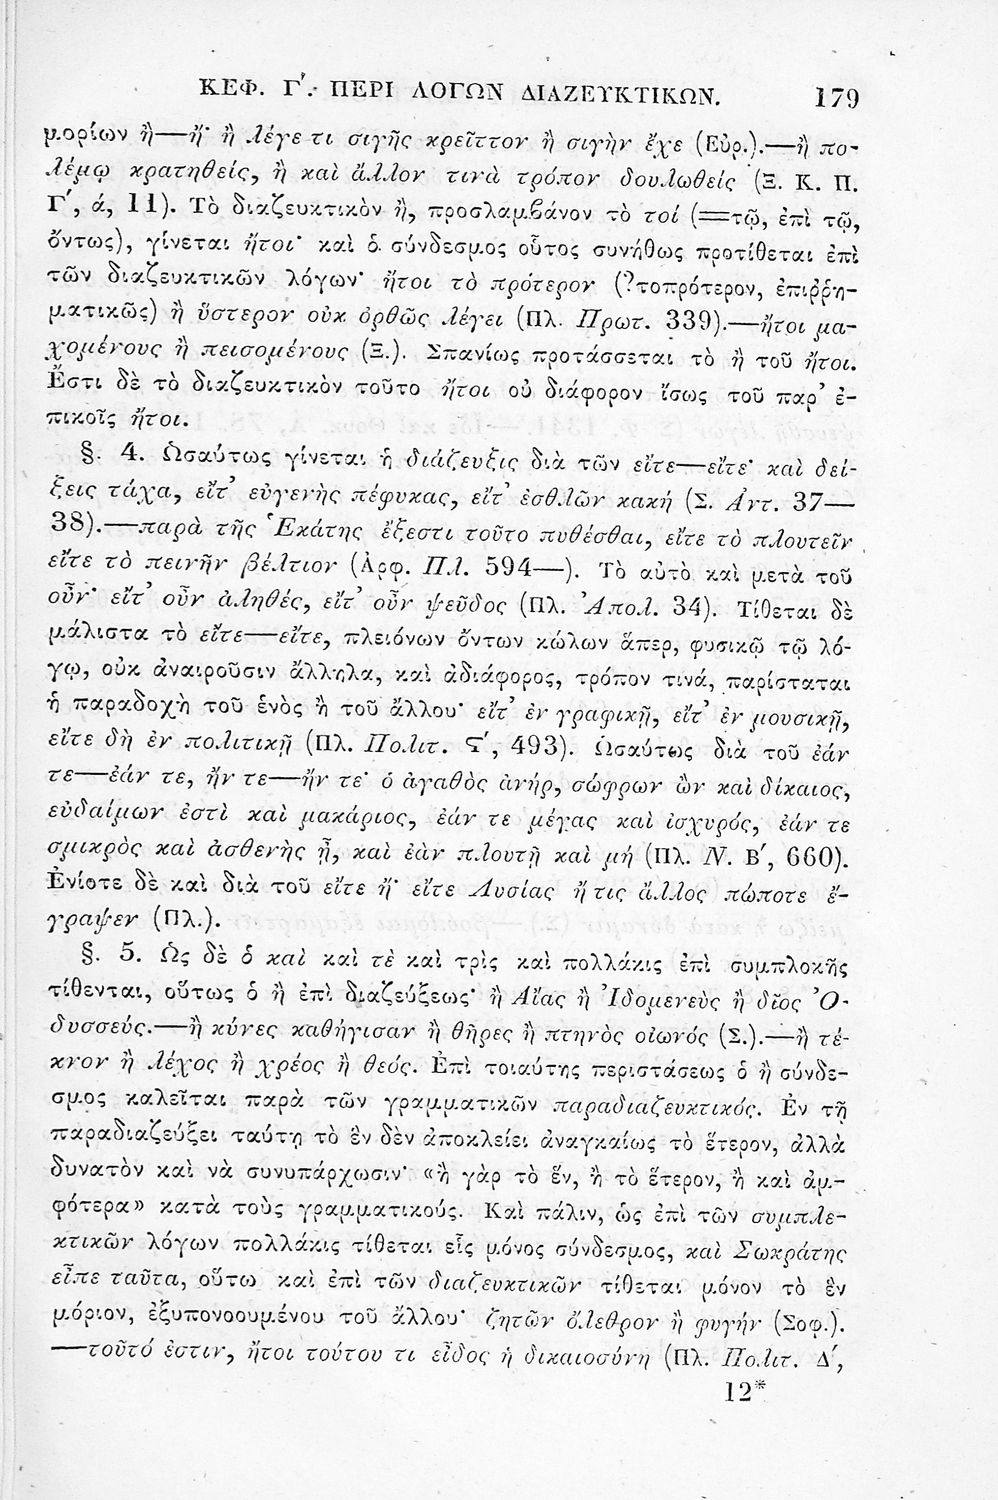 ΚΕΦ. Γ΄. ΠΕΡΙ ΛΟΓΩΝ ΔΙΑΖΕΥΚΤΙΚΩΝ. 179
μορίων ἢ—ἤ· ἢ λέγε τι σιγῆς κρεῖττον ἢ σιγὴν ἔχε (Εὐρ.).—ἢ πο-
λέμῳ κρατηθείς, ἢ καὶ ἄλλον τινὰ τρόπον δουλωθείς (Ξ. Κ. Π.
Γ΄, ά, 11). Τὸ διαζευκτικὸν ἢ, προσλαμβάνον τὸ τοί (=τῷ, ἐπὶ τῷ,
ὄντως), γίνεται ἤτοι· καὶ ὁ σύνδεσμος οὗτος συνήθως προτίθεται ἐπὶ
τῶν διαζευκτικῶν λόγων· ἤτοι τὸ πρότερον (?τοπρότερον, ἐπιῤῥη-
ματικῶς) ἢ ὕστερον οὐκ ὀρθῶς λέγει (Πλ. Πρωτ. 339).—ἤτοι μα-
χομένους ἢ πεισομένους (Ξ.). Σπανίως προτάσσεται τὸ ἢ τοῦ ἤτοι.
Ἔστι δὲ τὸ διαζευκτικὸν τοῦτο ἤτοι οὐ διάφορον ἴσως τοῦ παρ’ ἐ-
πικοῖς ἤτοι.
§. 4. Ὡσαύτως γίνεται ἡ διάζευξις διὰ τῶν εἴτε—εἴτε· καὶ δεί-
ξεις τάχα, εἴτ’ εὐγενὴς πέφυκας, εἴτ’ ἐσθλῶν κακή (Σ. Ἀντ. 37—
38).—παρὰ τῆς Ἑκάτης ἔξεστι τοῦτο πυθέσθαι, εἴτε τὸ πλουτεῖν
εἴτε τὸ πεινῆν βέλτιον (Ἀρφ. Πλ. 594—). Τὸ αὐτὸ καὶ μετὰ τοῦ
οὖν· εἴτ’ οὖν ἀληθές, εἴτ’ οὖν ψεῦδος (Πλ. Ἀπολ. 34). Τίθεται δὲ
μάλιστα τὸ εἴτε—εἴτε, πλειόνων ὄντων κώλων ἅπερ, φυσικῷ τῷ λό-
γῳ, οὐκ ἀναιροῦσιν ἄλληλα, καὶ ἀδιάφορος, τρόπον τινά, παρίσταται
ἡ παραδοχὴ τοῦ ἑνὸς ἢ τοῦ ἄλλου· εἴτ’ ἐν γραφικῇ, εἴτ’ ἐν μουσικῇ,
εἴτε δὴ ἐν πολιτικῇ (Πλ. Πολιτ. Ϛ΄, 493). Ὡσαύτως διὰ τοῦ ἐάν
τε—ἐάν τε, ἤν τε—ἤν τε· ὁ ἀγαθὸς ἀνήρ, σώφρων ὢν καὶ δίκαιος,
εὐδαίμων ἐστὶ καὶ μακάριος, ἐάν τε μέγας καὶ ἰσχυρός, ἐάν τε
σμικρὸς καὶ ἀσθενὴς ᾖ, καὶ ἐὰν πλουτῇ καὶ μή (Πλ. Ν. Β΄, 660).
Ἐνίοτε δὲ καὶ διὰ τοῦ εἴτε ἤ· εἴτε Λυσίας ἤ τις ἄλλος πώποτε ἔ-
γραψεν (Πλ.).
§. 5. Ὡς δὲ ὁ καὶ καὶ τὲ καὶ τρὶς καὶ πολλάκις ἐπὶ συμπλοκῆς
τίθενται, οὕτως ὁ ἢ ἐπὶ διαζεύξεως· ἢ Αἴας ἢ Ἰδομενεὺς ἢ δῖος Ὀ-
δυσσεύς.—ἢ κύνες καθήγισαν ἢ θῆρες ἢ πτηνὸς οἰωνός (Σ.).—ἢ τέ-
κνον ἢ λέχος ἢ χρέος ἢ θεός. Ἐπὶ τοιαύτης περιστάσεως ὁ ἢ σύνδε-
σμος καλεῖται παρὰ τῶν γραμματικῶν παραδιαζευκτικός. Ἐν τῇ
παραδιαζεύξει ταύτῃ τὸ ἓν δὲν ἀποκλείει ἀναγκαίως τὸ ἕτερον, ἀλλὰ
δυνατὸν καὶ νὰ συνυπάρχωσιν· «ἢ γὰρ τὸ ἕν, ἢ τὸ ἕτερον, ἢ καὶ ἀμ-
φότερα» κατὰ τοὺς γραμματικούς. Καὶ πάλιν, ὡς ἐπὶ τῶν συμπλε-
κτικῶν λόγων πολλάκις τίθεται εἷς μόνος σύνδεσμος, καὶ Σωκράτης
εἶπε ταῦτα, οὕτω καὶ ἐπὶ τῶν διαζευκτικῶν τίθεται μόνον τὸ ἓν
μόριον, ἐξυπονοουμένου τοῦ ἄλλου· ζητῶν ὄλεθρον ἢ φυγήν (Σοφ.).
—τοῦτό ἐστιν, ἤτοι τούτου τι εἶδος ἡ δικαιοσύνη (Πλ. Πολιτ. Δ΄,
12*